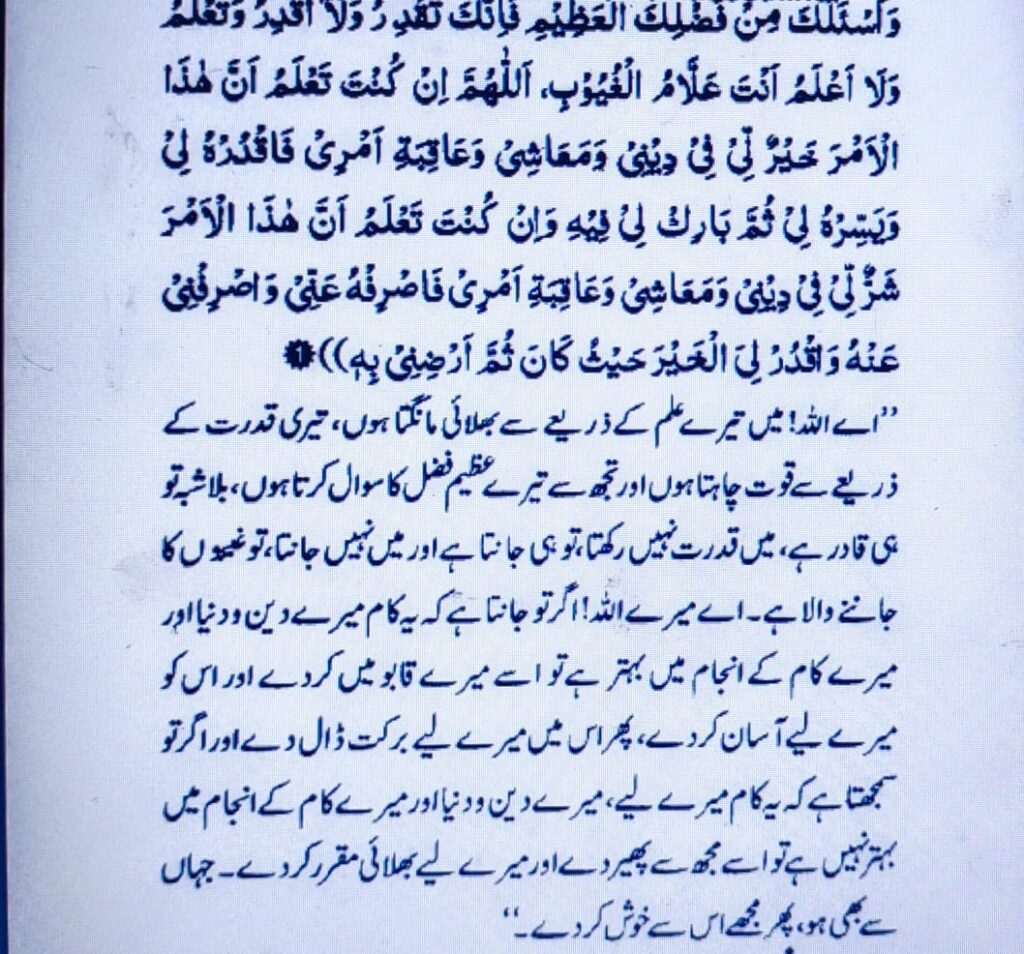 وَاَسْئَلُكَ مِنْ فَضْلِكَ الْعَظِيْمِ فَاِنَّكَ تَقْدِرُ وَلَا اَقْدِرُ وَتَعْلَمُ
وَلَا اَعْلَمُ اَنْتَ عَلَّامُ الْغُيُوْبِ، اَللّٰهُمَّ اِنْ كُنْتَ تَعْلَمُ اَنَّ هٰذَا
الْاَمْرَ خَيْرٌ لِّيْ فِيْ دِيْنِيْ وَمَعَاشِيْ وَعَاقِبَةِ اَمْرِيْ فَاقْدُرْهُ لِيْ
وَيَسِّرْهُ لِيْ ثُمَّ بَارِكْ لِيْ فِيْهِ وَاِنْ كُنْتَ تَعْلَمُ اَنَّ هٰذَا الْاَمْرَ
شَرٌّ لِّيْ فِيْ دِيْنِيْ وَمَعَاشِيْ وَعَاقِبَةِ اَمْرِيْ فَاصْرِفْهُ عَنِّيْ وَاصْرِفْنِيْ
عَنْهُ وَاقْدُرْ لِيَ الْخَيْرَ حَيْثُ كَانَ ثُمَّ اَرْضِنِيْ بِهٖ))
’’اے اللہ! میں تیرے علم کے ذریعے سے بھلائی مانگتا ہوں، تیری قدرت کے
ذریعے سے قوت چاہتا ہوں اور تجھ سے تیرے عظیم فضل کا سوال کرتا ہوں، بلاشبہ تو
ہی قادر ہے، میں قدرت نہیں رکھتا، تو ہی جانتا ہے اور میں نہیں جانتا، تو غیبوں کا
جاننے والا ہے۔ اے میرے اللہ! اگر تو جانتا ہے کہ یہ کام میرے دین و دنیا اور
میرے کام کے انجام میں بہتر ہے تو اسے میرے قابو میں کردے اور اس کو
میرے لیے آسان کردے، پھر اس میں میرے لیے برکت ڈال دے اور اگر تو
سمجھتا ہے کہ یہ کام میرے لیے، میرے دین و دنیا اور میرے کام کے انجام میں
بہتر نہیں ہے تو اسے مجھ سے پھیر دے اور میرے لیے بھلائی مقرر کردے۔ جہاں
سے بھی ہو، پھر مجھے اس سے خوش کردے۔‘‘